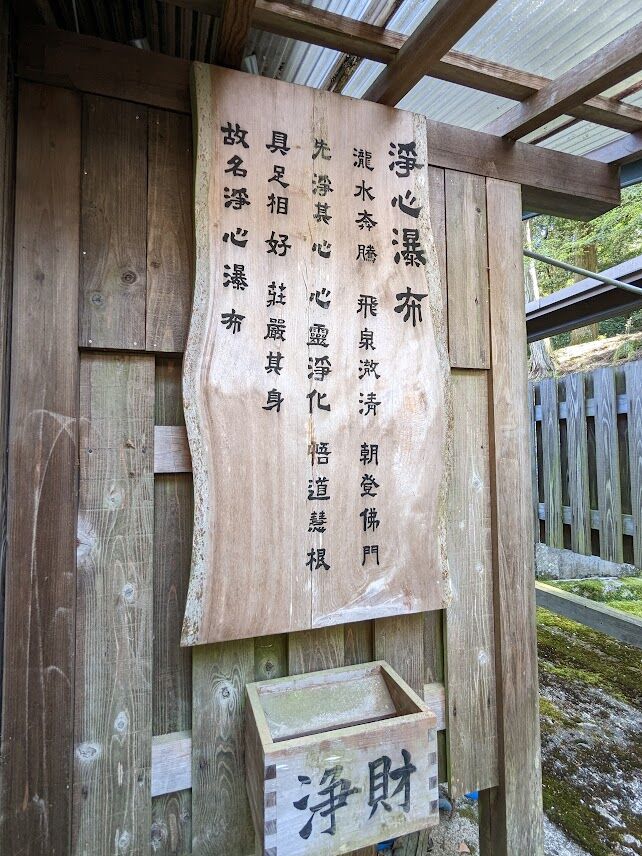 淨心瀑布
瀧水奔騰 飛泉澈清 朝登佛門
先淨其心 心靈淨化 悟道慧根
具足相好 莊嚴其身
故名淨心瀑布
浄財